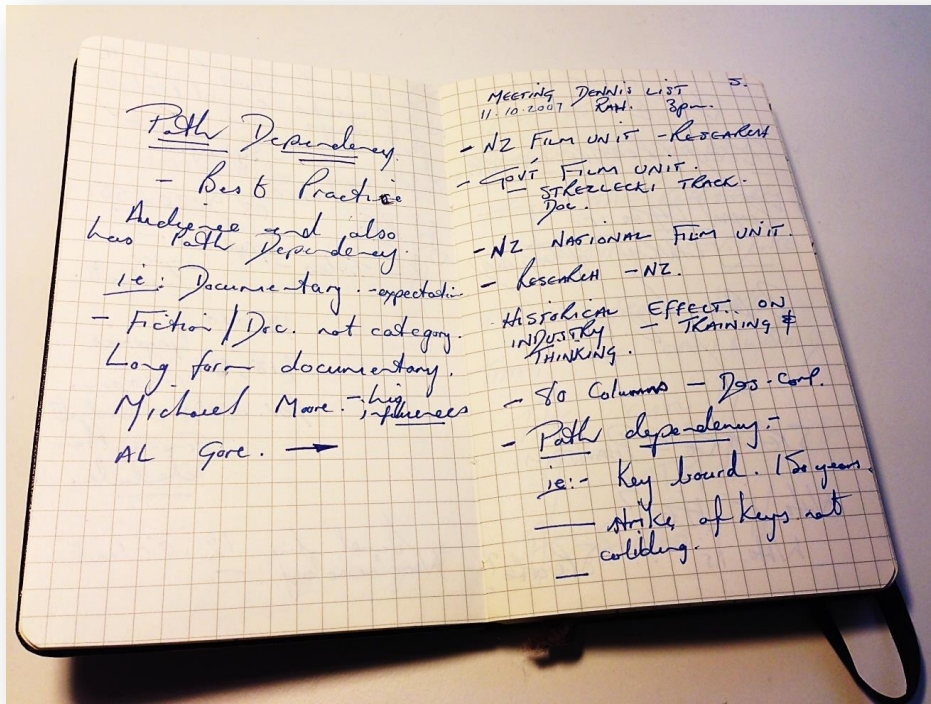 Path Dependency.
- Best Practice
Audience and also
has Path Dependency.
ie: Documentary - expectation
- Fiction / Doc. not category.
Long form documentary.
Michael Moore. - big
influences
AL Gore. →
5.
MEETING DENNIS LIST
11.10.2007 RAN. 3pm.
- NZ FILM UNIT - RESEARCH
- GOVT FILM UNIT.
- STREZLECKI TRACK.
Doc.
- NZ NATIONAL FILM UNIT.
- RESEARCH - NZ.
HISTORICAL EFFECT. ON
INDUSTRY - TRAINING &
THINKING.
- 80 Columns - Dos-comp.
- Path dependency:-
ie:- Key board. 150 years.
— strike of keys not
coliding.
—